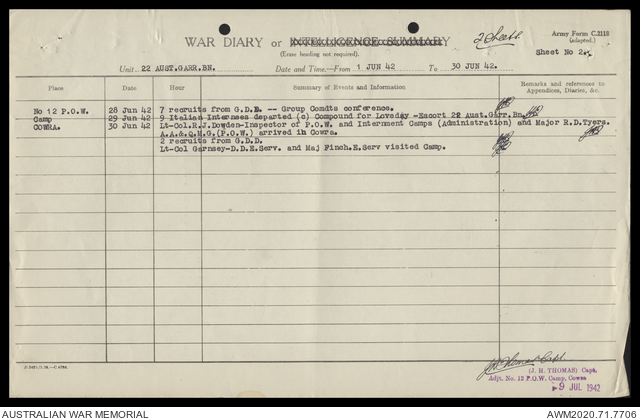 WAR DIARY or INTELLIGENCE SUMMARY
2 Sheets.
Army Form C.2118
(adapted.)
(Erase heading not required).
Sheet No 2.
Unit 22 AUST.GARR.BN. Date and Time.—From 1 JUN 42 To 30 JUN 42.
Place Date Hour Summary of Events and Information Remarks and references to
Appendices, Diaries, &c.
No 12 P.O.W. 28 Jun 42 7 recruits from G.D.D. -- Group Comdts conference.
Camp 29 Jun 42 9 Italian Internees departed (c) Compound for Loveday -Escort 22 Aust.Garr.Bn.
COWRA. 30 Jun 42 Lt-Col.R.J.Dowden-Inspector of P.O.W. and Internment Camps (Administration) and Major R.D.Tyers.
A.A.&.Q.M.G.(P.O.W.) arrived in Cowra.
2 recruits from G.D.D.
Lt-Col Garnsey-D.D.E.Serv. and Maj Finch.E.Serv visited Camp.
(J. H. THOMAS) Capt.
Adjt. No. 12 P.O.W. Camp, Cowra
9 JUL 1942
AUSTRALIAN WAR MEMORIAL AWM2020.71.7706